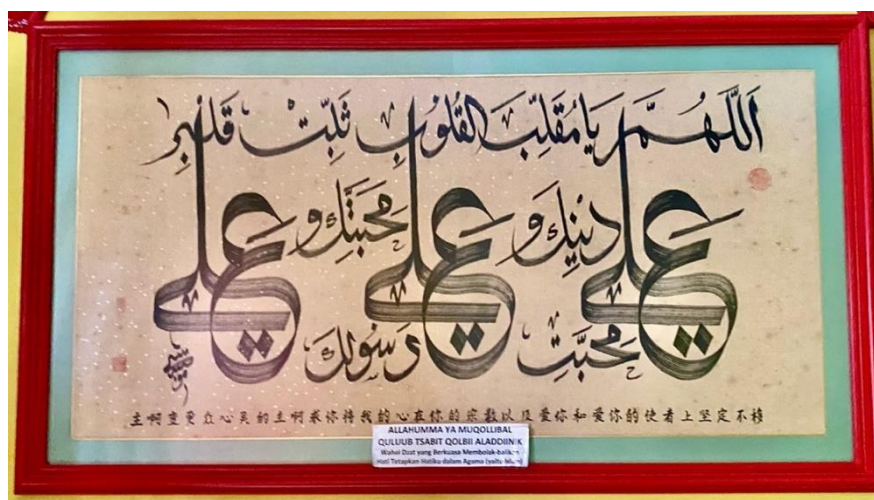 اَللّٰهُمَّ يَا مُقَلِّبَ القُلُوْبِ ثَبِّتْ قَلْبِي
عَلَى دِيْنِكَ وَ عَلَى مَحَبَّتِكَ وَ عَلَى
مَحَبَّتِ رَسُوْلِكَ
主啊变更众心灵的主啊求你将我的心在你的宗教以及爱你和爱你的使者上坚定不移
ALLAHUMMA YA MUQOLLIBAL
QULUUB TSABIT QOLBII ALADDIINIK
Wahai Dzat yang Berkuasa Membolak-balikan
Hati Tetapkan Hatiku dalam Agama (yaitu Islam)